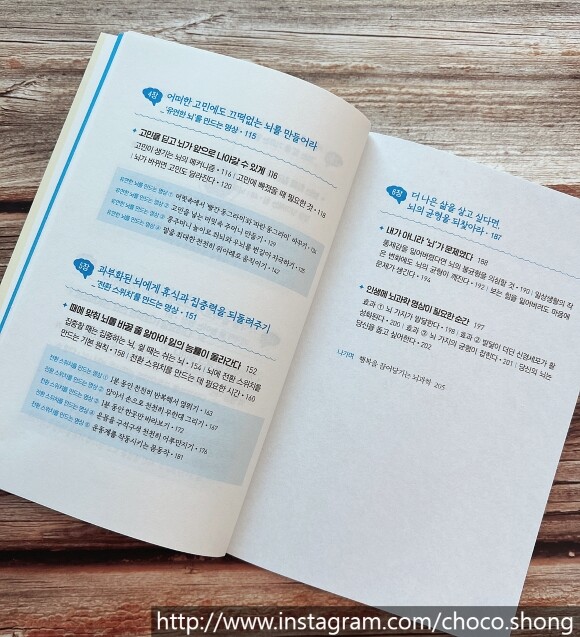 4장
어떠한 고민에도 끄떡없는 뇌를 만들어라
_'유연한 뇌'를 만드는 명상 · 115
+ 고민을 딛고 뇌가 앞으로 나아갈 수 있게 116
고민이 생기는 뇌의 메커니즘 · 116 | 고민에 빠졌을 때 필요한 것 · 118
| 뇌가 바뀌면 고민도 달라진다 · 120
유연한 뇌를 만드는 명상 ① 머릿속에서 빨간 동그라미와 파란 동그라미 바꾸기 · 124
유연한 뇌를 만드는 명상 ② 고민을 넣는 머릿속 주머니 만들기 · 129
유연한 뇌를 만드는 명상 ③ 콩주머니 놀이로 좌뇌와 우뇌를 번갈아 자극하기 · 135
유연한 뇌를 만드는 명상 ④ 팔을 최대한 천천히 위아래로 움직이기 · 142
5장
과부화된 뇌에게 휴식과 집중력을 되돌려주기
_'전환 스위치'를 만드는 명상 · 151
+ 때에 맞춰 뇌를 바꿀 줄 알아야 일의 능률이 올라간다 152
집중할 때는 집중하는 뇌, 쉴 때는 쉬는 뇌 · 154 | 뇌에 전환 스위치를
만드는 기본 원칙 · 158 | 전환 스위치를 만드는 데 필요한 시간 · 160
전환 스위치를 만드는 명상 ① 1분 동안 천천히 반복해서 덤뛰기 · 163
전환 스위치를 만드는 명상 ② 앉아서 손으로 천천히 무한대 그리기 · 167
전환 스위치를 만드는 명상 ③ 1분 동안 한곳만 바라보기 · 172
전환 스위치를 만드는 명상 ④ 온몸을 구석구석 천천히 어루만지기 · 176
전환 스위치를 만드는 명상 ⑤ 운동계를 작동시키는 곰동작 · 181
6장
더 나은 삶을 살고 싶다면,
뇌의 균형을 되찾아라 · 187
+ 내가 아니라 '뇌'가 문제였다 188
통제감을 잃어버렸다면 뇌의 불균형을 의심할 것 · 190 | 일상생활의 작
은 변화에도 뇌의 균형이 깨진다 · 192 | 보는 힘을 잃어버려도 마음에
문제가 생긴다 · 194
+ 인생에 뇌과학 명상이 필요한 순간 197
효과 ① 뇌 가지가 발달한다 · 198 | 효과 ② 발달이 더딘 신경세포가 활
성화된다 · 200 | 효과 ③ 뇌 가지의 균형이 잡힌다 · 201 | 당신의 뇌는
당신을 돕고 싶어한다 · 202
나가며 행복을 끌어당기는 뇌과학 205
http://www.instagram.com/choco.shong